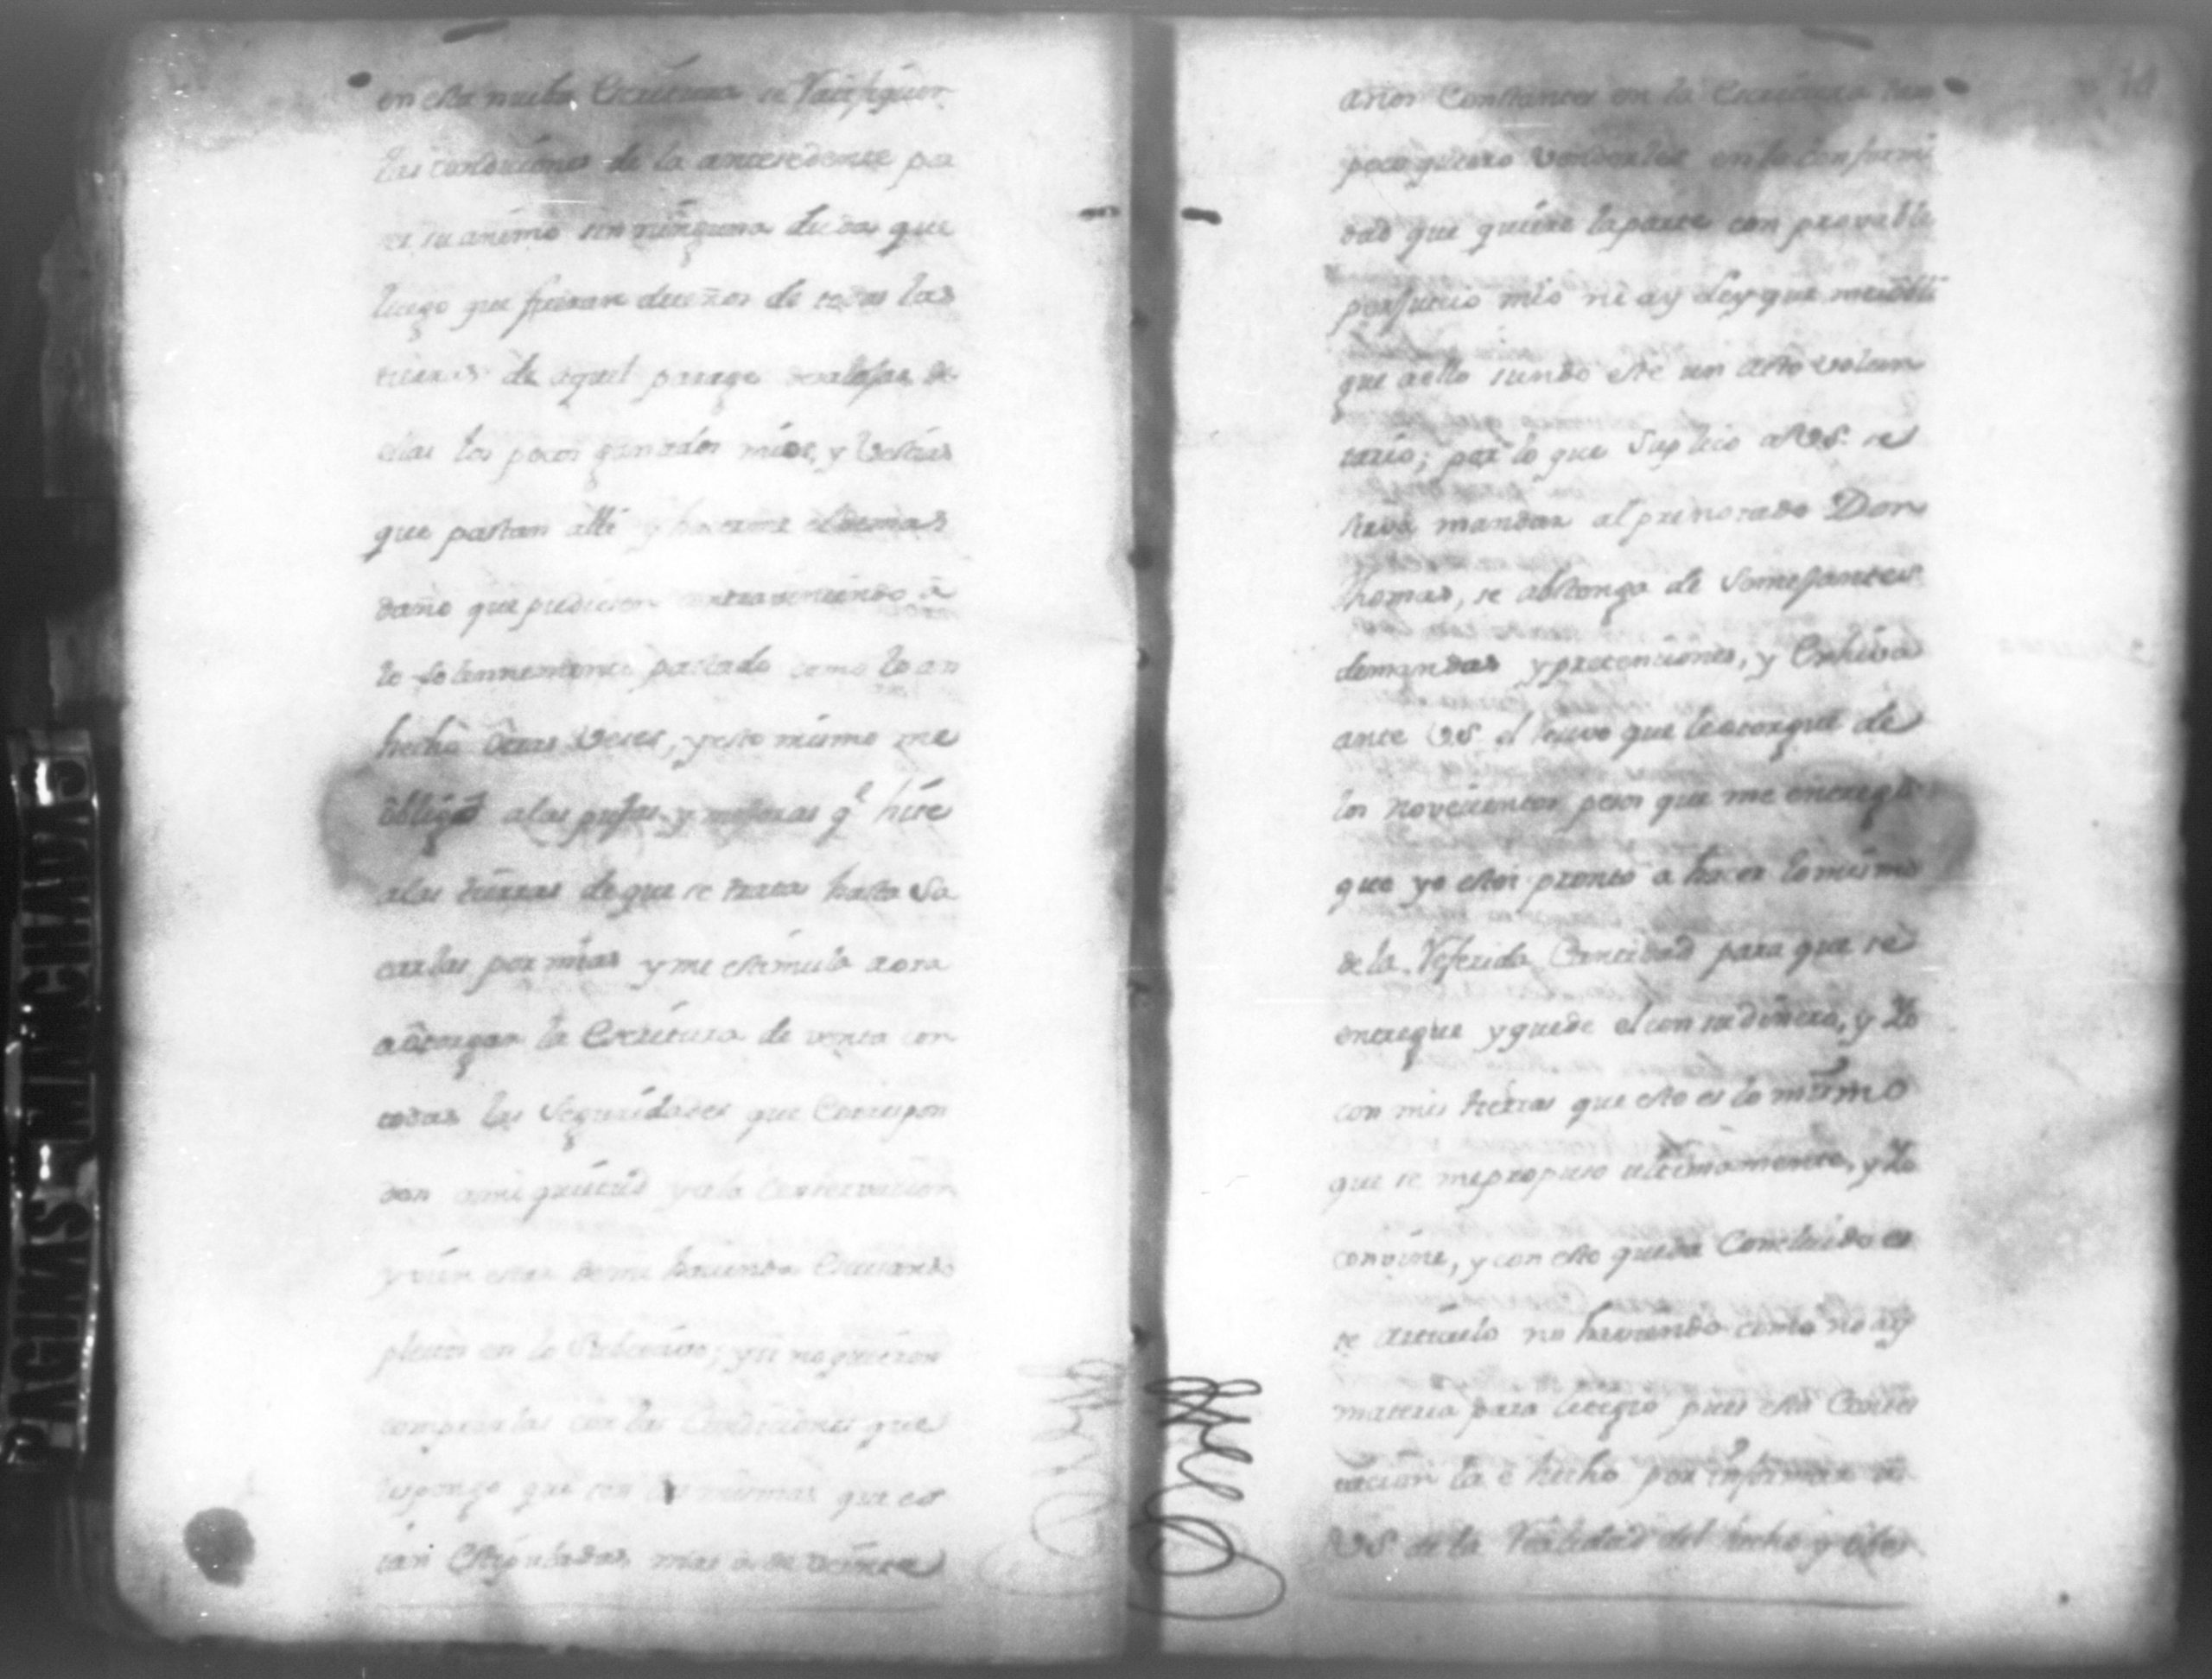 en esta nueba Escritura se Ratifiquen
las condiciones de la antesedente por
ser su animo sin ninguna duda que
luego que fueran dueños de todas las
tierras de aquel parage de
ellas los pocos ganados mios, y Vestias
que pastan alli y hacerme el demas
daño que pudieren contraviniendo â
lo solennemente pactado como lo an
hecho ôtras veses, y esto mismo me
ôbligó a las pujas y mejoras q.e hise
a las tierras de que se trata hasta Sa
carlas por mias y me estimula aora
a ôtorgar la Escritura de venta con
todas las Seguridades que Correspon
dan a mi quietud y a la Conservacion
de mi hacienda Escusando
pleitos en lo Subcesivo; y si no quieren
comprarlas con las Condiciones que
les pongo que son las mismas que es
tan Estipuladas, mias
años Constantes en la Escritura tam
poco quiero Venderles en la conformi
dad que quiere la parte con provable
perjuicio mio ni ay Ley que me obli
que a ello siendo este un acto volun
tario; por lo que Suplico a V.S. se
sirva mandar al prenotado Don
Thomas, se abstenga de Semejantes
demandas y pretenciones, y Exhiva
ante V.S. el resivo que le otorgué de
los novecientos pesos que me entregó
que yo estoi pronto a haser lo mismo
de la Referida Cantidad para que se
entregue y quede el con su dinero, y Yo
con mis tierras que esto es lo mismo
que se me propuso ultimamente, y Yo
convine, y con esto queda Concluido es
te articulo no haviendo como no ay
materia para litigio pues esta Contes
tacion la e hecho por informar a
V.S. de la Realidad del hecho y